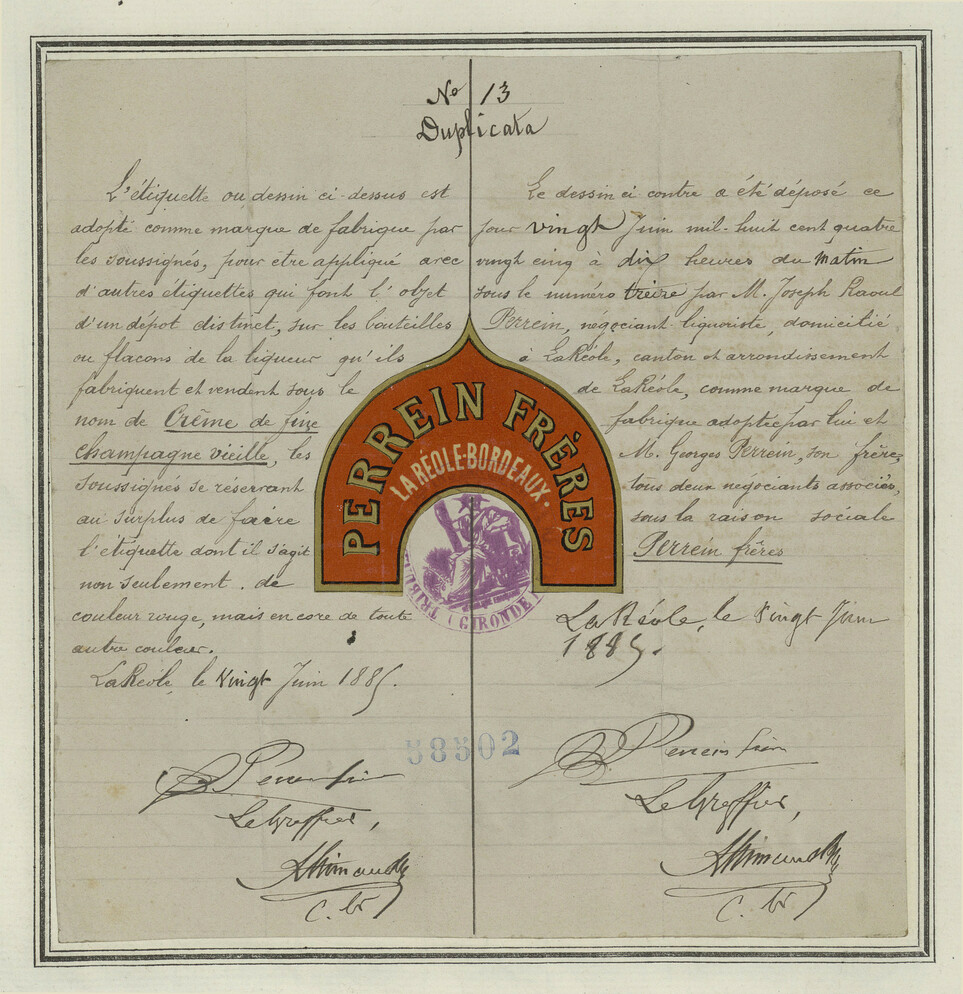 No 13
Duplicata
L'étiquette ou dessin ci-dessus est
adopté comme marque de fabrique par
les soussignés, pour etre appliqué avec
d'autres étiquettes qui font l'objet
d'un dépot distinct, sur les bouteilles
ou flacons de la liqueur qu'ils
fabriquent et vendent sous le
nom de Crême de fine
champagne vieille, les
soussignés se réservant
au surplus de faire
l'étiquette dont il s'agit
non seulement de
couleur rouge, mais encore de toute
autre couleur.
LaRéole, le vingt Juin 1885.
Perrein frères
Le Greffier,
Le dessin ci contre a été déposé ce
jour vingt Juin mil-huit cent quatre
vingt cinq à dix heures du matin
sous le numéro treize par M. Joseph Raoul
Perrein, négociant liquoriste, domicilié
à LaRéole, canton et arrondissement
de LaRéole, comme marque de
fabrique adoptée par lui et
M. Georges Perrein, son frère,
tous deux negociants associés,
sous la raison sociale
Perrein frères
LaRéole, le Vingt Juin
1885.
Perrein frères
Le Greffier,
PERREIN FRÈRES
LA RÉOLE-BORDEAUX.
(GIRONDE)
58502